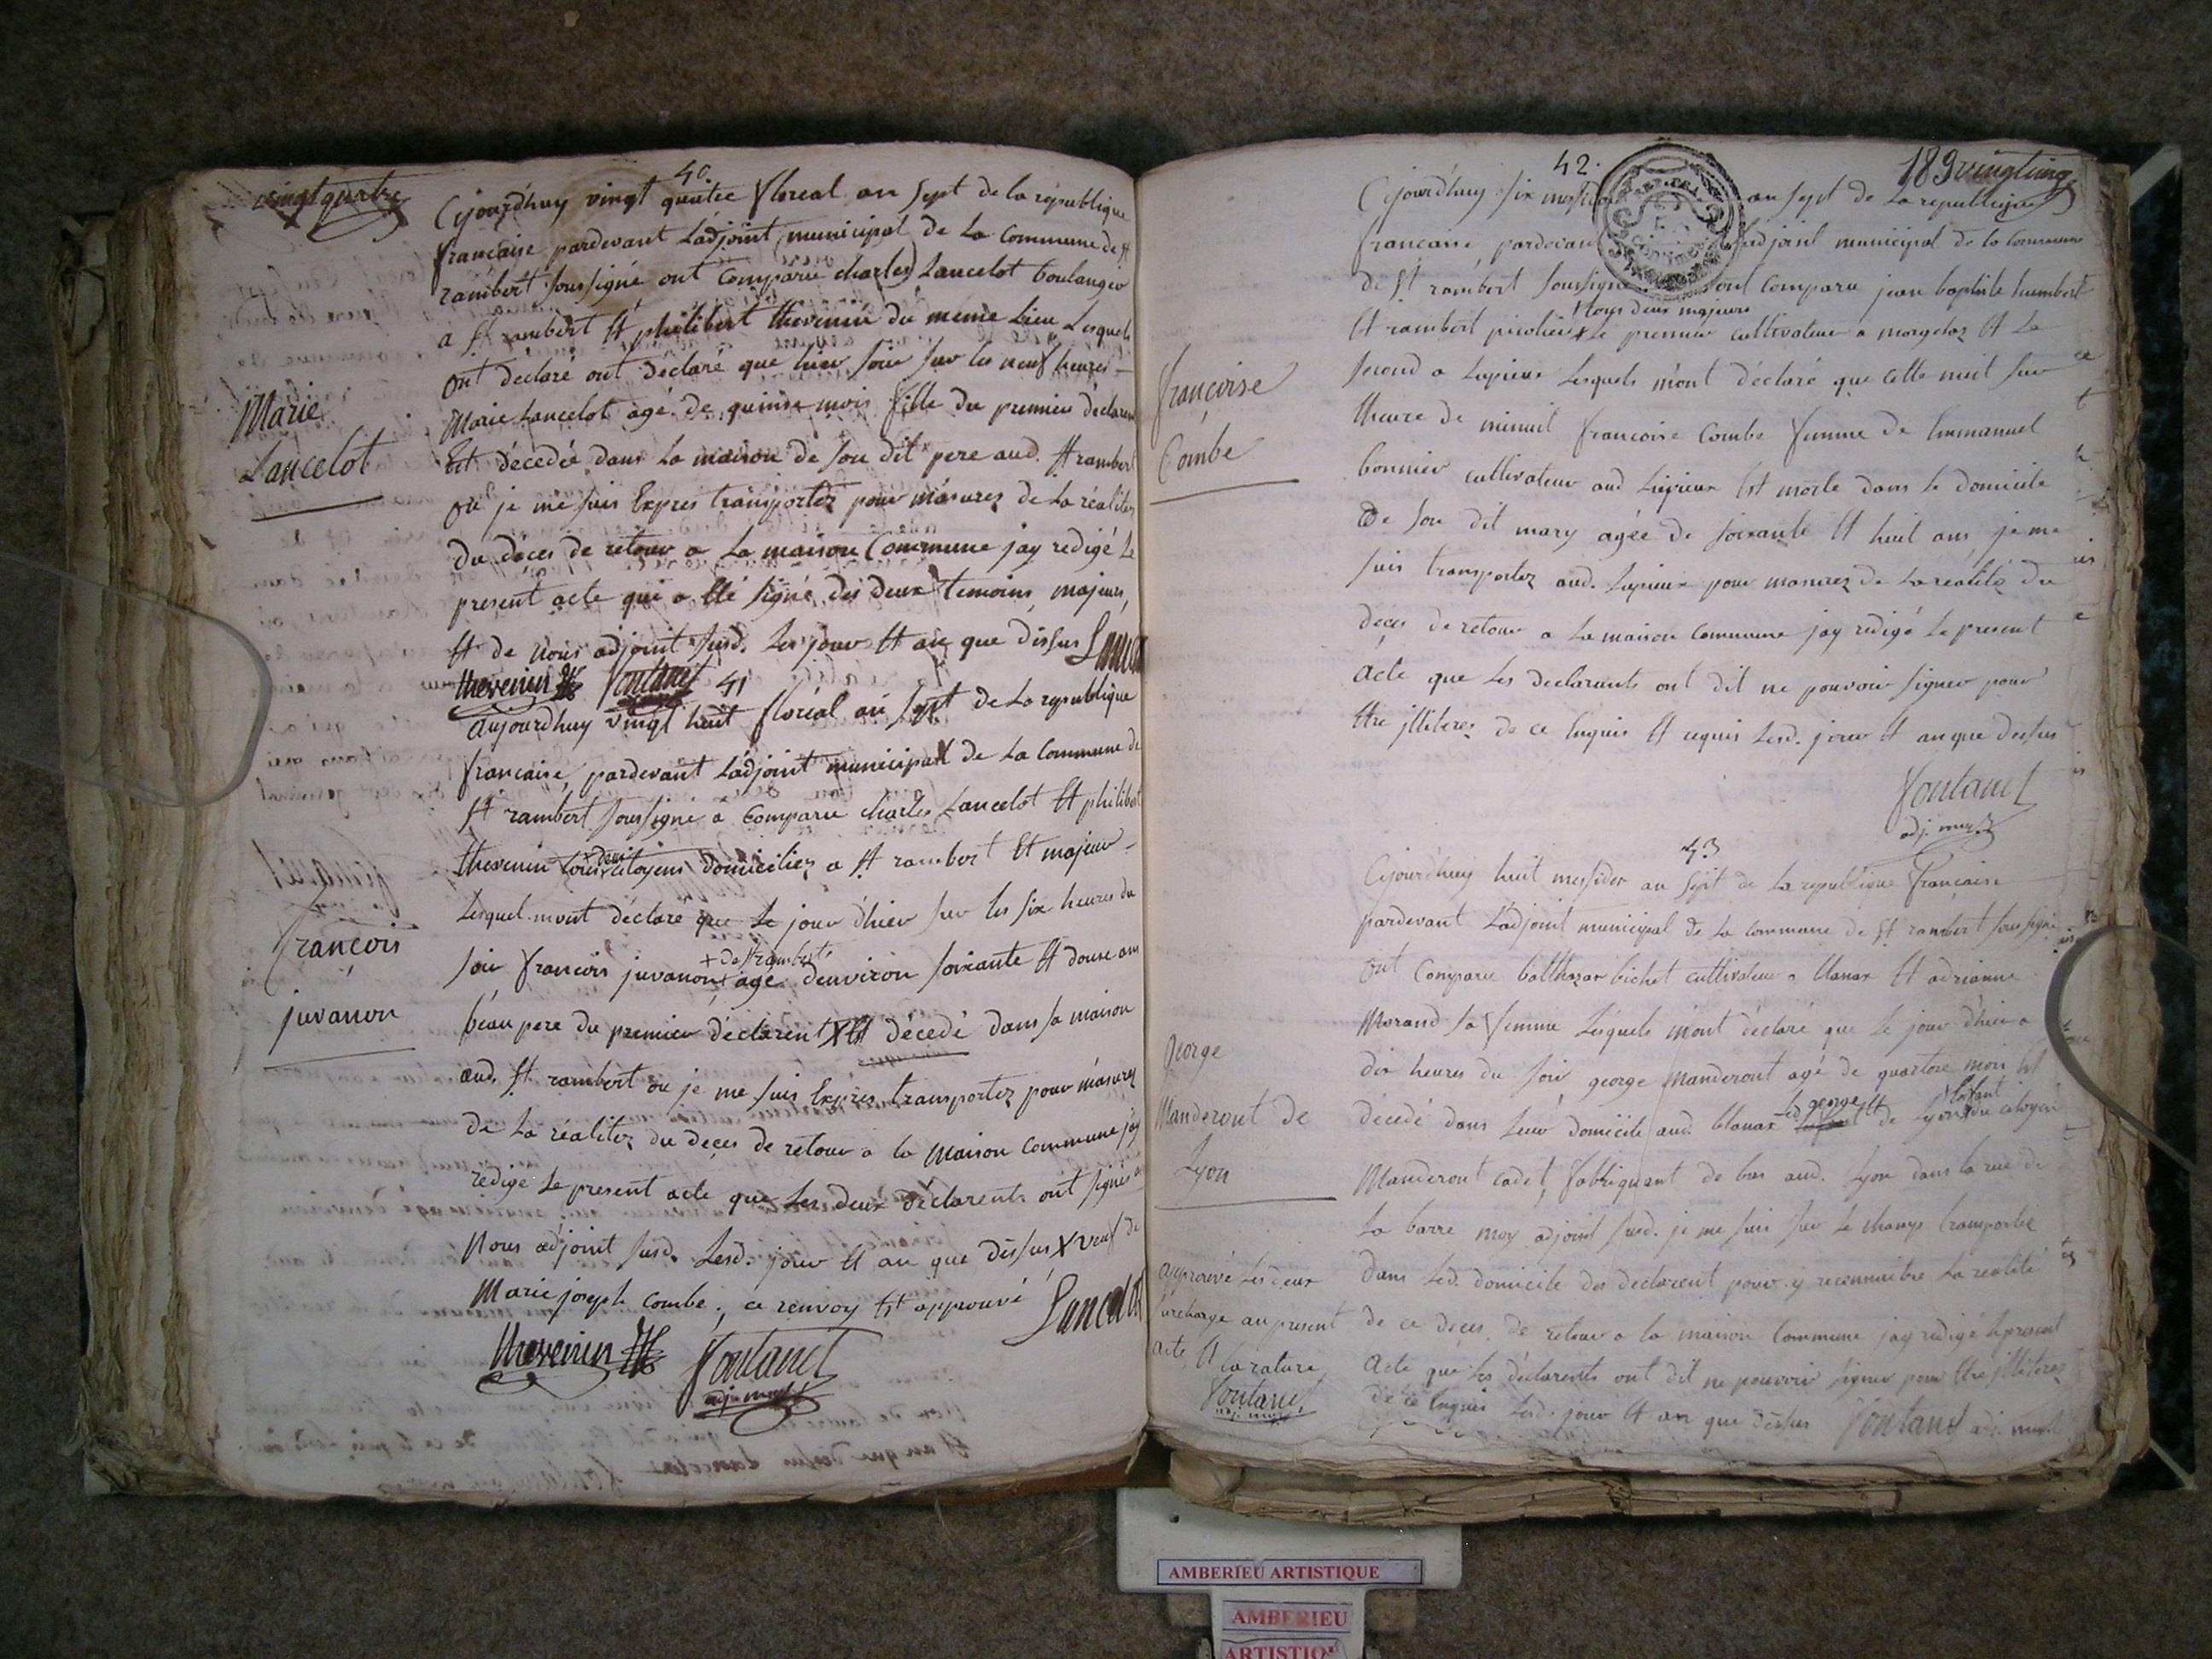 vingt quatre
40.
Cejourd'huy vingt quatre floréal an sept de la république
francaise pardevant L'adjoint municipal de La Commune de st
rambert soussigné ont comparu charles Lancelot boulanger
a st rambert Et philibert thevenin du même Lieu Lesquels
ont déclaré ont déclaré que hier soir sur les neuf heures
Marie Lancelot agé de quinse mois fille du premier déclarent
Est décedée dans La maison de son dit pere aud. st rambert
Marie
Lancelot
ou je me suis Expres transportez pour m'asurez de La réalitez
du déces de retour a La maison Commune jay redigé Le
present acte qui a Eté signé des deux temoins majeurs,
Et de nous adjoint susd. Les jour Et an que dessus Lancelot
thevenin fontanel
41
aujourdhuy vingt huit floréal an sept de La republique
francaise, pardevant L'adjoint municipal de La Commune de
st rambert soussigné a comparu charles Lancelot Et philibert
thevenin tous deux citoyens domiciliez a st rambert Et majeur
Lesquel mont déclaré que Le jour d'hier sur les six heures du
soir francois juvanon + de st rambert agé denviron soixante Et douse ans
francois
juvanon
beau pere du premier déclarent X Est décedé dans sa maison
aud. st rambert ou je me suis Expres transportez pour m'asurez
de La réalitez du deces de retour a la maison Commune jay
redigé Le present acte que Les deux déclarents ont signés
Nous adjoint susd. Lesd. jour Et an que dessus X veuf de
Marie joseph Combe ; ce renvoy Est approuvé Lancelot
thevenin fontanel
adj. mupl
42.
189 vingt cinq
Cejourd'huy six messidor an sept de La republique
francaise, pardevant L'adjoint municipal de La commune
de st rambert soussigné ont comparu jean baptiste humbert
Et rambert + tous deux majeurs Le premier cultivateur a morgelas Et Le
second a Lupieux Lesquels m'ont déclaré que cette nuit sur
Lheure de minuit francoise Combe femme de Emmanuel
françoise
Combe
bonnier cultivateur aud Lupieux Est morte dans Le domicile
de son dit mary agée de soixante Et huit ans je me
suis transportez aud. Lupieux pour m'asurez de La réalité du
déces de retour a La maison Commune jay redigé Le present
acte que Les declarants ont dit ne pouvoir signer pour
Etre jlliterez de ce Enquis Et requis Lesd. jour Et an que dessus
fontanel
adj. mupl
43
Cejourd'huy huit messidor an sept de La republique francaise
pardevant L'adjoint municipal de La Commune de st rambert soussigné
ont Comparu balthazar bichet cultivateur a blanax Et adrianne
Morand sa femme Lesquels m'ont déclaré que Le jour d'hier a
dix heures du soir george Manderont agé de quatorze mois Est
décedé dans Leur domicile aud. blanax Led george Et de Lyon + Enfant du citoyen
george
Manderont de
Lyon
Manderont cadet, fabriquant de bas aud. Lyon dans la rue de
La barre moy adjoint susd. je me suis sur Le champ transporté
dans Led. domicile des declarent pour y reconnaitre La realité
de ce déces. de retour a la maison Commune jay redigé Le present
Acte que Les déclarents ont dit ne pouvoir signer pour Etre jlliterez
de ce Enquis Lesd. jour Et an que dessus fontanel adj. mupl
approuvé Les deux
surcharge au present
acte, Et La rature
fontanel
adj. mupl
AMBERIEU ARTISTIQUE
AMBERIEU
ARTISTIQU